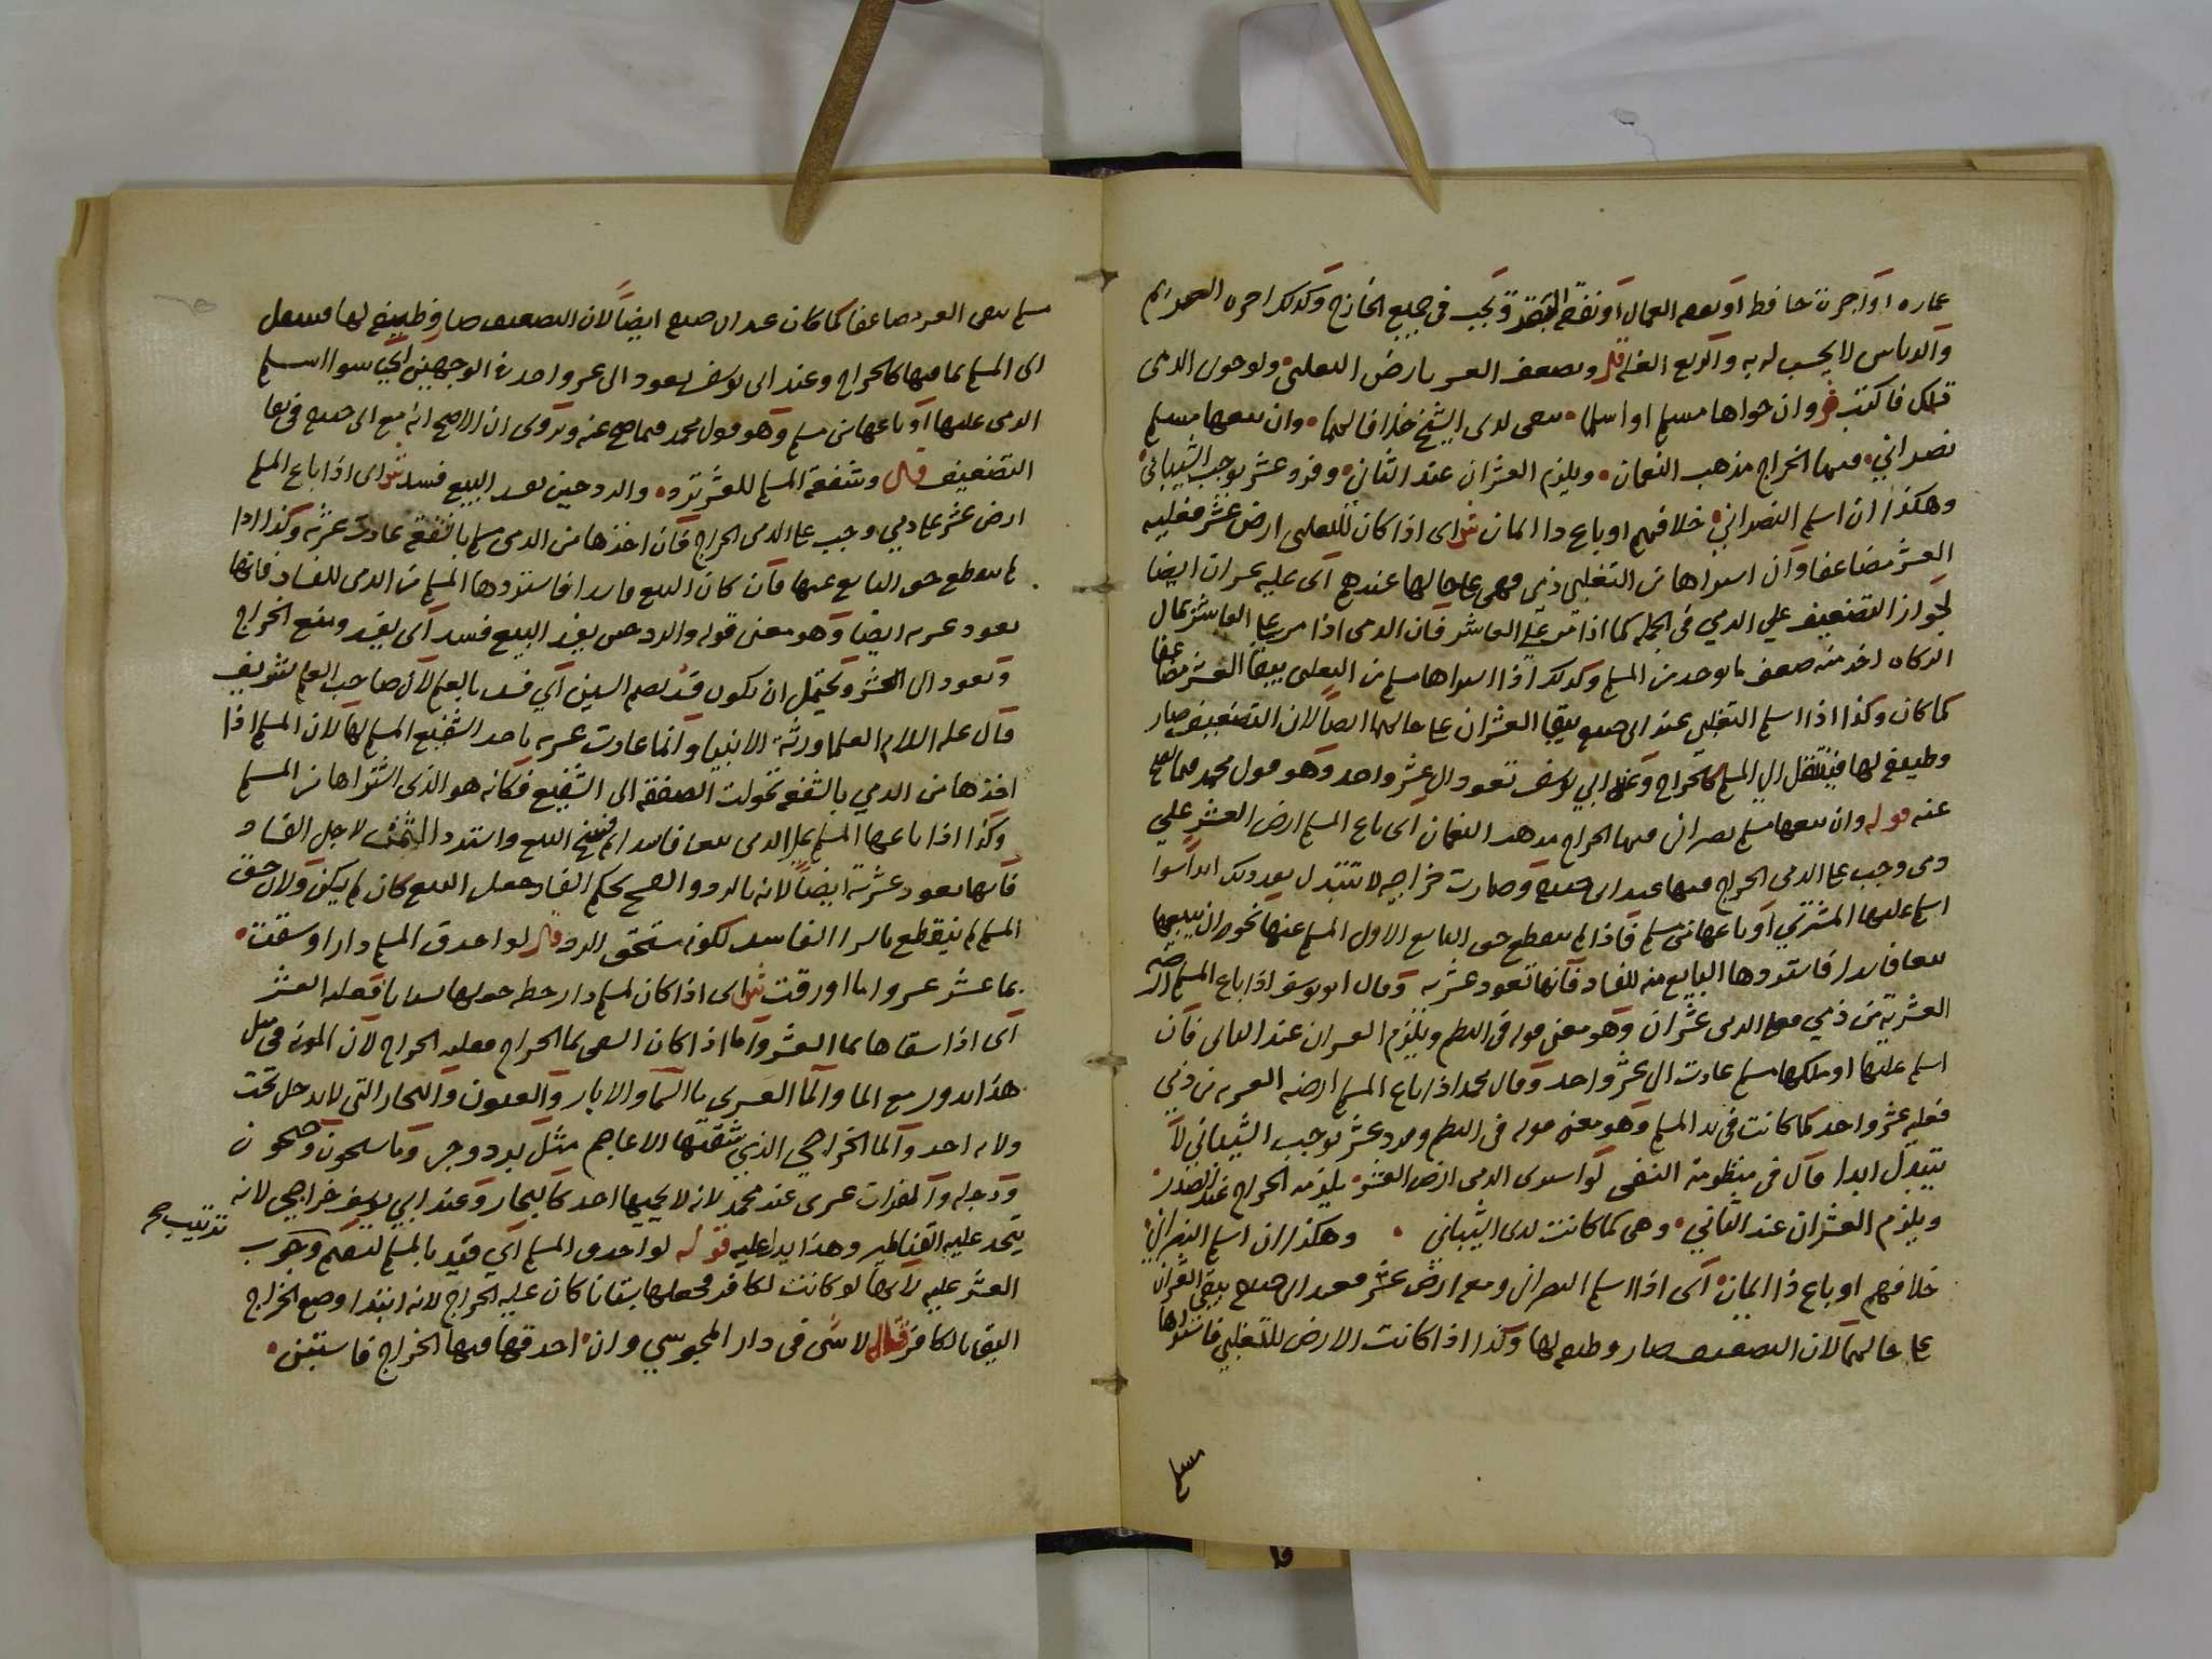 عماره او اجرة حافظ او نفقه العمال او نفقة البقر وتجب في جميع الخارج وكذلك اجره
والدياس لا يحسب له به والربع الغله قال وضعف العشر بارض التغلبي ولو حوى الذمى
تملك فاكتب وان حواها مسلم او اسلما يبقى لدى الشيخ خلافا لهما وان يبعها مسلم
نصراني ففيها الخراج مذهب النعمان ويلزم العشران عند الثاني وفرد عشر يوجب الشيباني
وهكذا ان اسلم النصراني خلافهم او باع ذا ايمان ش اى اذا كان للتغلبى ارض عشر فعليه
العشر مضاعفا وان اشتراها من التغلبي ذمى فهى على حالها عندهم اى عليه عشران ايضا
لجواز التضعيف على الذمي في الجمله كما اذا مر على العاشر فان الذمى اذا مر على العاشر بمال
الزكاه اخذ منه ضعف ما يوخذ من المسلم وكذلك اذا اشتراها مسلم من التغلبى يبقى العشر مضاعفا
كما كان وكذا اذا اسلم التغلبي عند ابى حنيفه يبقى العشران على حالهما ايضا لان التضعيف صار
وظيفة لها فينتقل الى المسلم كالخراج وعند ابي يوسف تعود الى عشر واحد وهو قول محمد فيما صح
عنه قوله وان يبعها مسلم نصرانى ففيها الخراج مذهب النعمان اى باع المسلم ارض العشر على
ذمى وجب على الذمى الخراج فيها عند ابى حنيفه وصارت خراجيه لا تتبدل بعد ذلك ابدا سوا
اسلم عليها المشتري او باعها من مسلم فاذا لم ينقطع حق البايع الاول المسلم عنها نحو ان يبيعها
بيعا فاسدا فاستردها البايع منه للفساد فانها تعود عشريه وقال ابو يوسف اذا باع المسلم ارضه
العشرية من ذمي فعلى الذمى عشران وهو معنى قوله فى النظم ويلزم العشران عند الثانى فان
اسلم عليها او ملكها مسلم عادت الى عشر واحد وقال محمد اذا باع المسلم ارضه العشريه من ذمى
فعليه عشر واحد كما كانت فى يد المسلم وهو معنى قوله فى النظم وفرد عشر يوجب الشيباني لا
يتبدل ابدا قال فى منظومة النسفى لو اشترى الذمى ارض العشر يلزمه الخراج عند الصدر
ويلزم العشران عند الثاني وهى كما كانت لدى الشيباني وهكذا ان اسلم النصراني
خلافهم او باع ذا ايمان اى اذا اسلم النصرانى ومعه ارض عشر فعند ابى حنيفه يبقى العشران
على حالهما لان التضعيف صار وظيفه لها وكذا اذا كانت الارض للتغلبي فاشتراها
مسلم
مسلم يبقى العشر مضاعفا كما كان عند ابى حنيفه ايضا لان التضعيف صار وظيفة لها فينتقل
الى المسلم بما فيها كالخراج وعند ابى يوسف يعود الى عشر واحد فى الوجهين اى سوا اسلم
الذمى عليها او باعها من مسلم وهو قول محمد فيما صح عنه ويروى ان الاصح انه مع ابى حنيفه فى بقا
التضعيف قال وشفعة المسلم للعشر ترد والرد حين يفسد البيع فسد ش اى اذا باع المسلم
ارض عشر على ذمي وجب على الذمى الخراج فان اخذها من الذمى مسلم بالشفعة عادت عشرية وكذا اذا
لم ينقطع حق البايع عنها فان كان البيع فاسدا فاستردها المسلم من الذمى للفساد فانها
تعود عشريه ايضا وهو معنى قوله والرد حين يفسد البيع فسد اى يفسد وضع الخراج
وتعود الى العشر ويحتمل ان يكون فسد بضم السين اى فسد بالعلم لان صاحب العلم شريف
قال عليه السلام العلما ورثة الانبيا وانما عادت عشريه باخذ الشفيع المسلم لها لان المسلم اذا
اخذها من الذمي بالشفعه تحولت الصفقة الى الشفيع فكانه هو الذى اشتراها من المسلم
وكذا اذا باعها المسلم على الذمى بيعا فاسدا ثم فسخ البيع واسترد الثمن لاجل الفساد
فانها تعود عشرية ايضا لانه بالرد والفسخ بحكم الفساد جعل البيع كان لم يكن ولان حق
المسلم لم ينقطع بالشرا الفاسد لكونه مستحق الرد قال لو احدق المسلم دارا وسقت
بما عشر عشروا ما اورقت ش اى اذا كان لمسلم دار خطه حولها بستانا فعليه العشر
اى اذا سقاها بما العشر واما اذا كان السقى بما الخراج فعليه الخراج لان المونه في مثل
هذا تدور مع الما والما العشري ما السما والابار والعيون والبحار التى لا تدخل تحت
ولايه احد والما الخراجي الذي شقتها الاعاجم مثل يزدجر وما سيحون وجيحون
ودجله والفرات عشرى عند محمد لانه لا يحميها احد كالبحار وعند ابي يوسف خراجي لانه
يتخذ عليه القناطير وهذا يد عليه قوله لو احدق المسلم اى قيد بالمسلم ليصح وجوب
ترتيب صح
العشر عليه لانها لو كانت لكافر فجعلها بستانا كان عليه الخراج لانه ابتدا وضع الخراج
اليق بالكافر قال لا شى فى دار المجوسي وان احدقها ففيها الخراج فاستبن